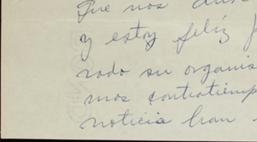 que nos
y estoy feliz
rado su organis
mos contratiemp
noticia han